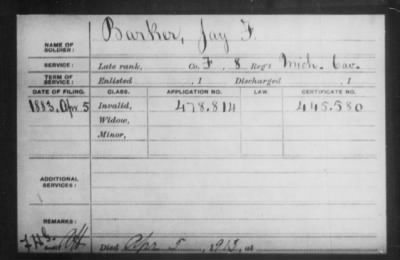 NAME OF SOLDIER: Barker, Jay F.
SERVICE: Late rank, Co. F, 8 Reg't Mich. Cav.
TERM OF SERVICE: Enlisted , 1 Discharged , 1
DATE OF FILING. CLASS. APPLICATION NO. LAW. CERTIFICATE NO.
1883, Apr. 5 Invalid, 478.814 445.580
Widow,
Minor,
ADDITIONAL SERVICES:
REMARKS:
Died Apr 5, 1913, at